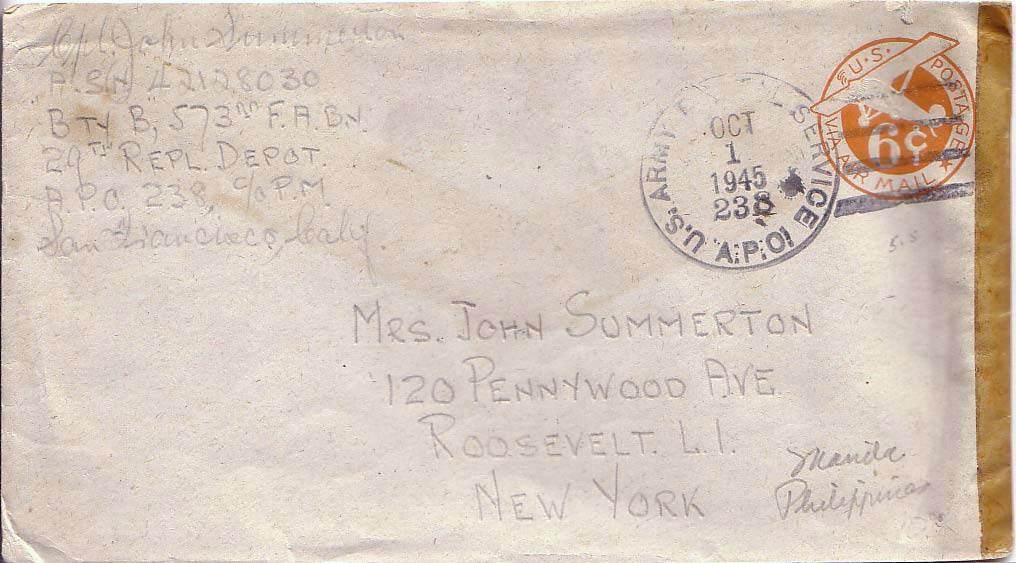 Cpl John Summerton
A.S.N. 42128030
BTY B, 573RD F.A.BN.
29TH REPL. DEPOT.
A.P.O. 238, c/o P.M.
San Francisco, Calif.
U.S. ARMY SERVICE A.P.O.
OCT
1
1945
238
U.S. POSTAGE
VIA AIR MAIL
6¢
S.S
MRS. JOHN SUMMERTON
120 PENNYWOOD AVE.
ROOSEVELT. L.I.
NEW YORK
Manila
Philippines